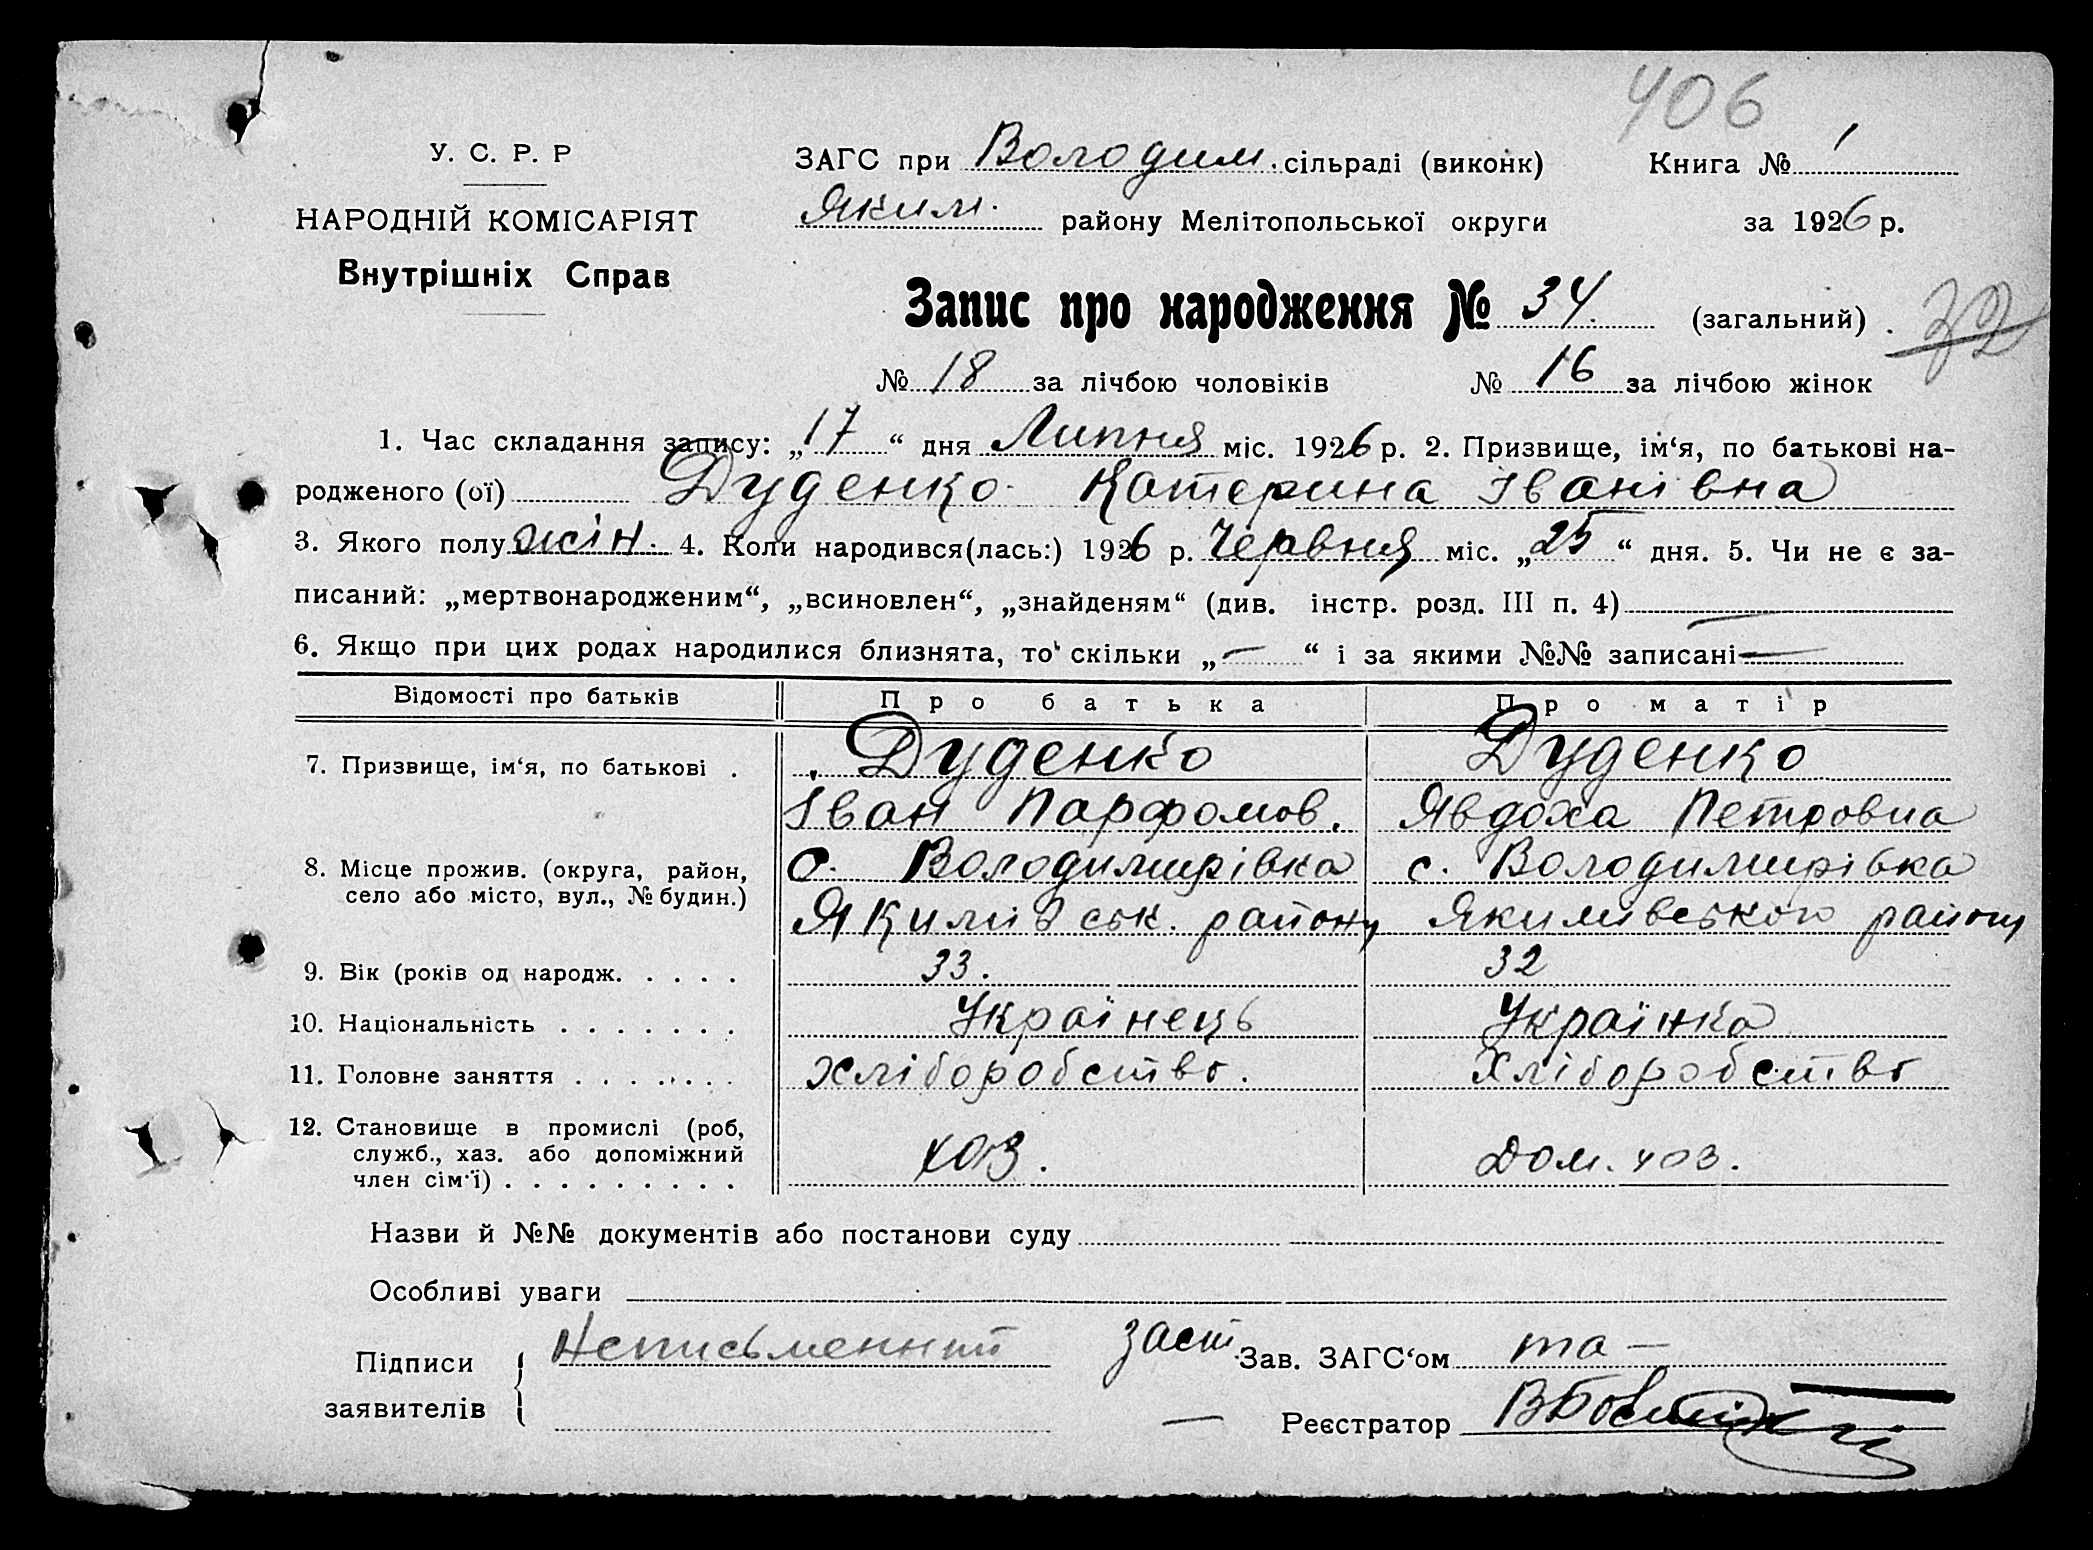 406
У. С. Р. Р
НАРОДНІЙ КОМІСАРІЯТ
Внутрішніх Справ
ЗАГС при Володим. сільраді (виконк) Книга № 1
Яким. району Мелітопольської округи за 1926 р.
Запис про народження № 34. (загальний)
32
№ 18 за лічбою чоловіків № 16 за лічбою жінок
1. Час складання запису: „17“ дня Липня міс. 1926 р. 2. Призвище, ім‘я, по батькові на-
родженого (ої) Дуденко Катерина Іванівна
3. Якого полу жін. 4. Коли народився(лась:) 1926 р. Червня міс. „25“ дня. 5. Чи не є за-
писаний: „мертвонародженим“, „всиновлен“, „знайденям“ (див. інстр. розд. III п. 4) —
6. Якщо при цих родах народилися близнята, то скільки „—“ і за якими №№ записані —
Відомості про батьків Про батька Про матір
7. Призвище, ім‘я, по батькові . Дуденко Дуденко
Іван Парфомов. Явдоха Петровна
8. Місце прожив. (округа, район, с. Володимирівка с. Володимирівка
село або місто, вул., № будин.) Якимівськ. району Якимівського району
9. Вік (років од народж. . . . . 33. 32
10. Національність . . . . . . . Українець Українка
11. Головне заняття . . . . . . . хліборобство. Хліборобство
12. Становище в промислі (роб,
служб., хаз. або допоміжний хоз. дом. хоз.
член сім‘ї) . . . . . . . . .
Назви й №№ документів або постанови суду
Особливі уваги
Підписи Неписьменний Заст. Зав. ЗАГС‘ом та —
заявителів — Реєстратор